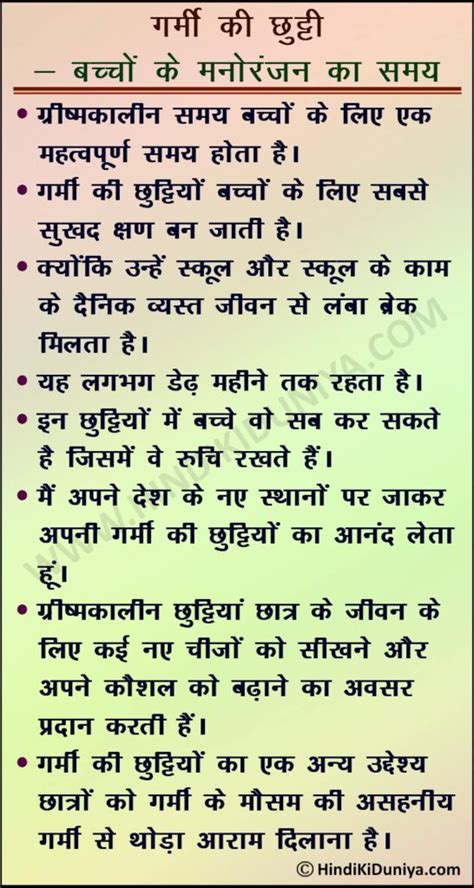 गर्मी की छुट्टी
– बच्चों के मनोरंजन का समय
• ग्रीष्मकालीन समय बच्चों के लिए एक
महत्वपूर्ण समय होता है।
• गर्मी की छुट्टियों बच्चों के लिए सबसे
सुखद क्षण बन जाती है।
• क्योंकि उन्हें स्कूल और स्कूल के काम
के दैनिक व्यस्त जीवन से लंबा ब्रेक
मिलता है।
• यह लगभग डेढ़ महीने तक रहता है।
• इन छुट्टियों में बच्चे वो सब कर सकते
है जिसमें वे रुचि रखते हैं।
• मैं अपने देश के नए स्थानों पर जाकर
अपनी गर्मी की छुट्टियों का आनंद लेता
हूं।
• ग्रीष्मकालीन छुट्टियां छात्र के जीवन के
लिए कई नए चीजों को सीखने और
अपने कौशल को बढ़ाने का अवसर
प्रदान करती हैं।
• गर्मी की छुट्टियों का एक अन्य उद्देश्य
छात्रों को गर्मी के मौसम की असहनीय
गर्मी से थोड़ा आराम दिलाना है।
© HindiKiDuniya.com
WWW.HINDIKIDUNIYA.COM